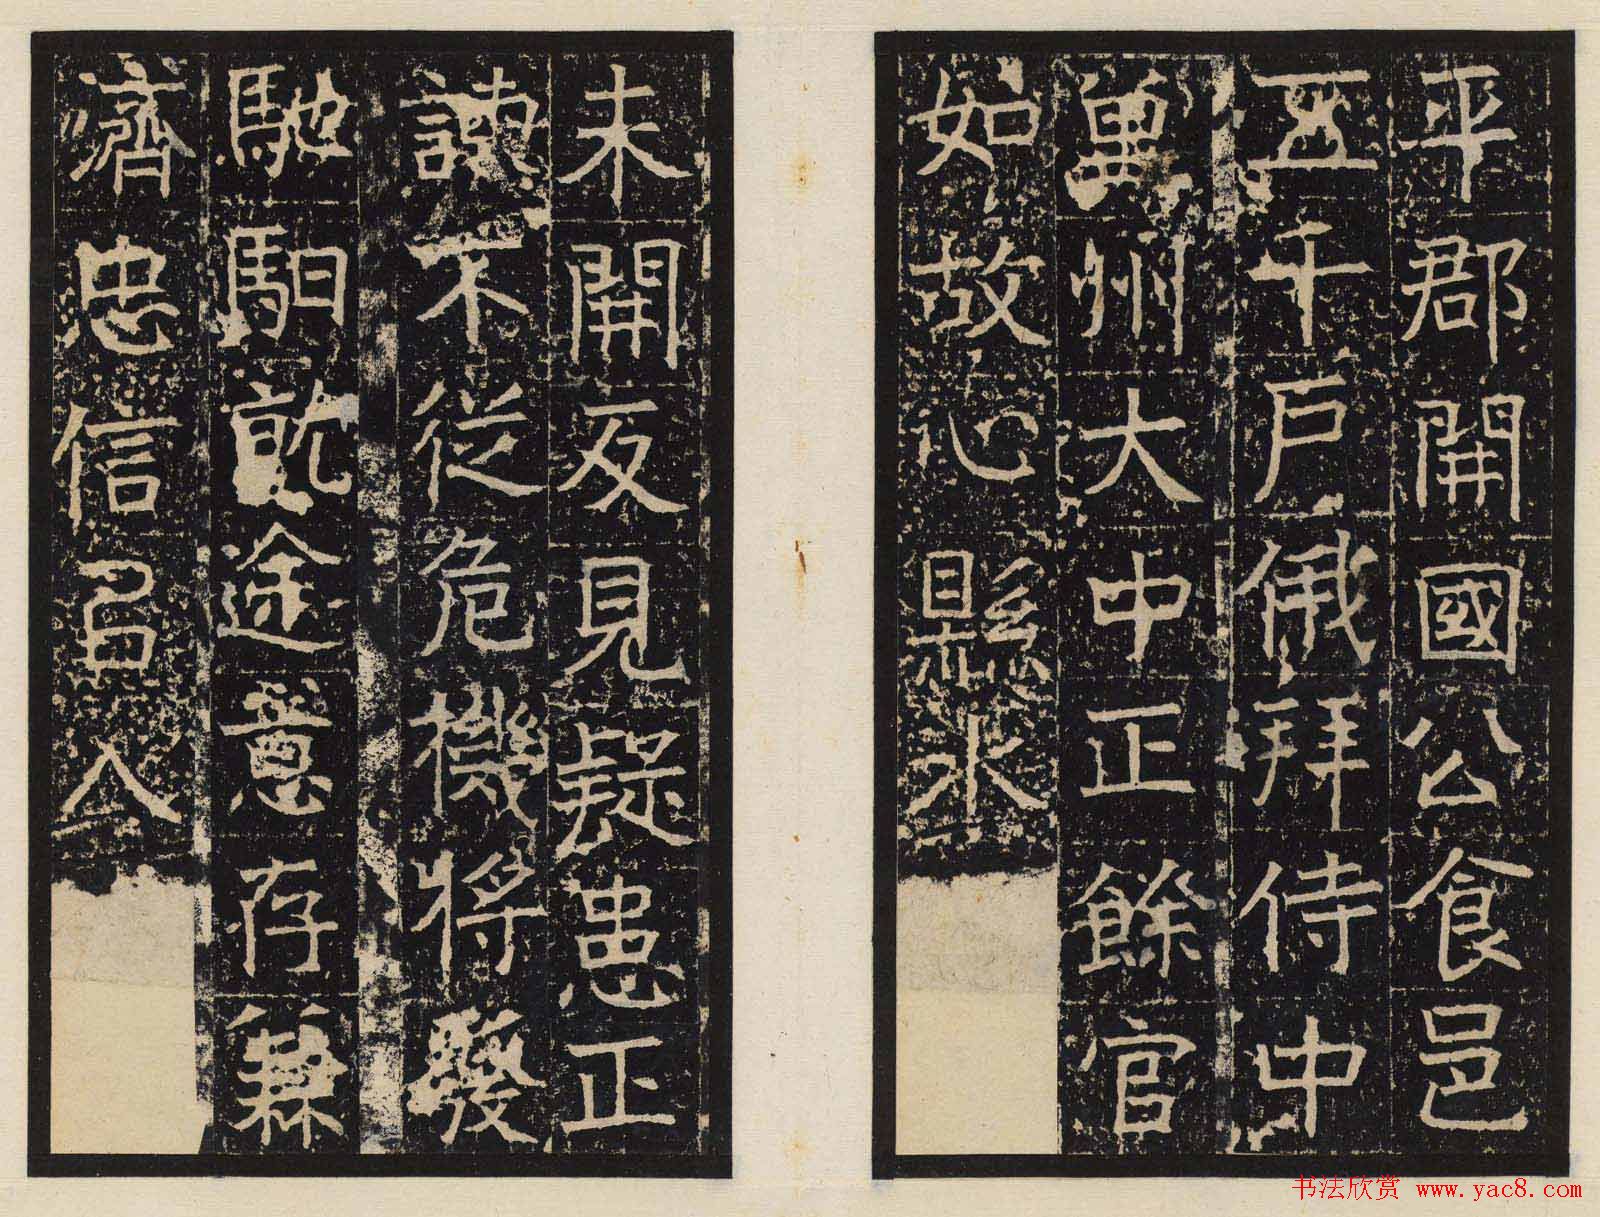 平郡開國公食邑
五千戶俄拜侍中
冀州大中正餘官
如故心縣水
未開反見疑患正
諫不從危機將發
馳馹就途意存兼
濟忠信召入
书法欣赏 www.yac8.com